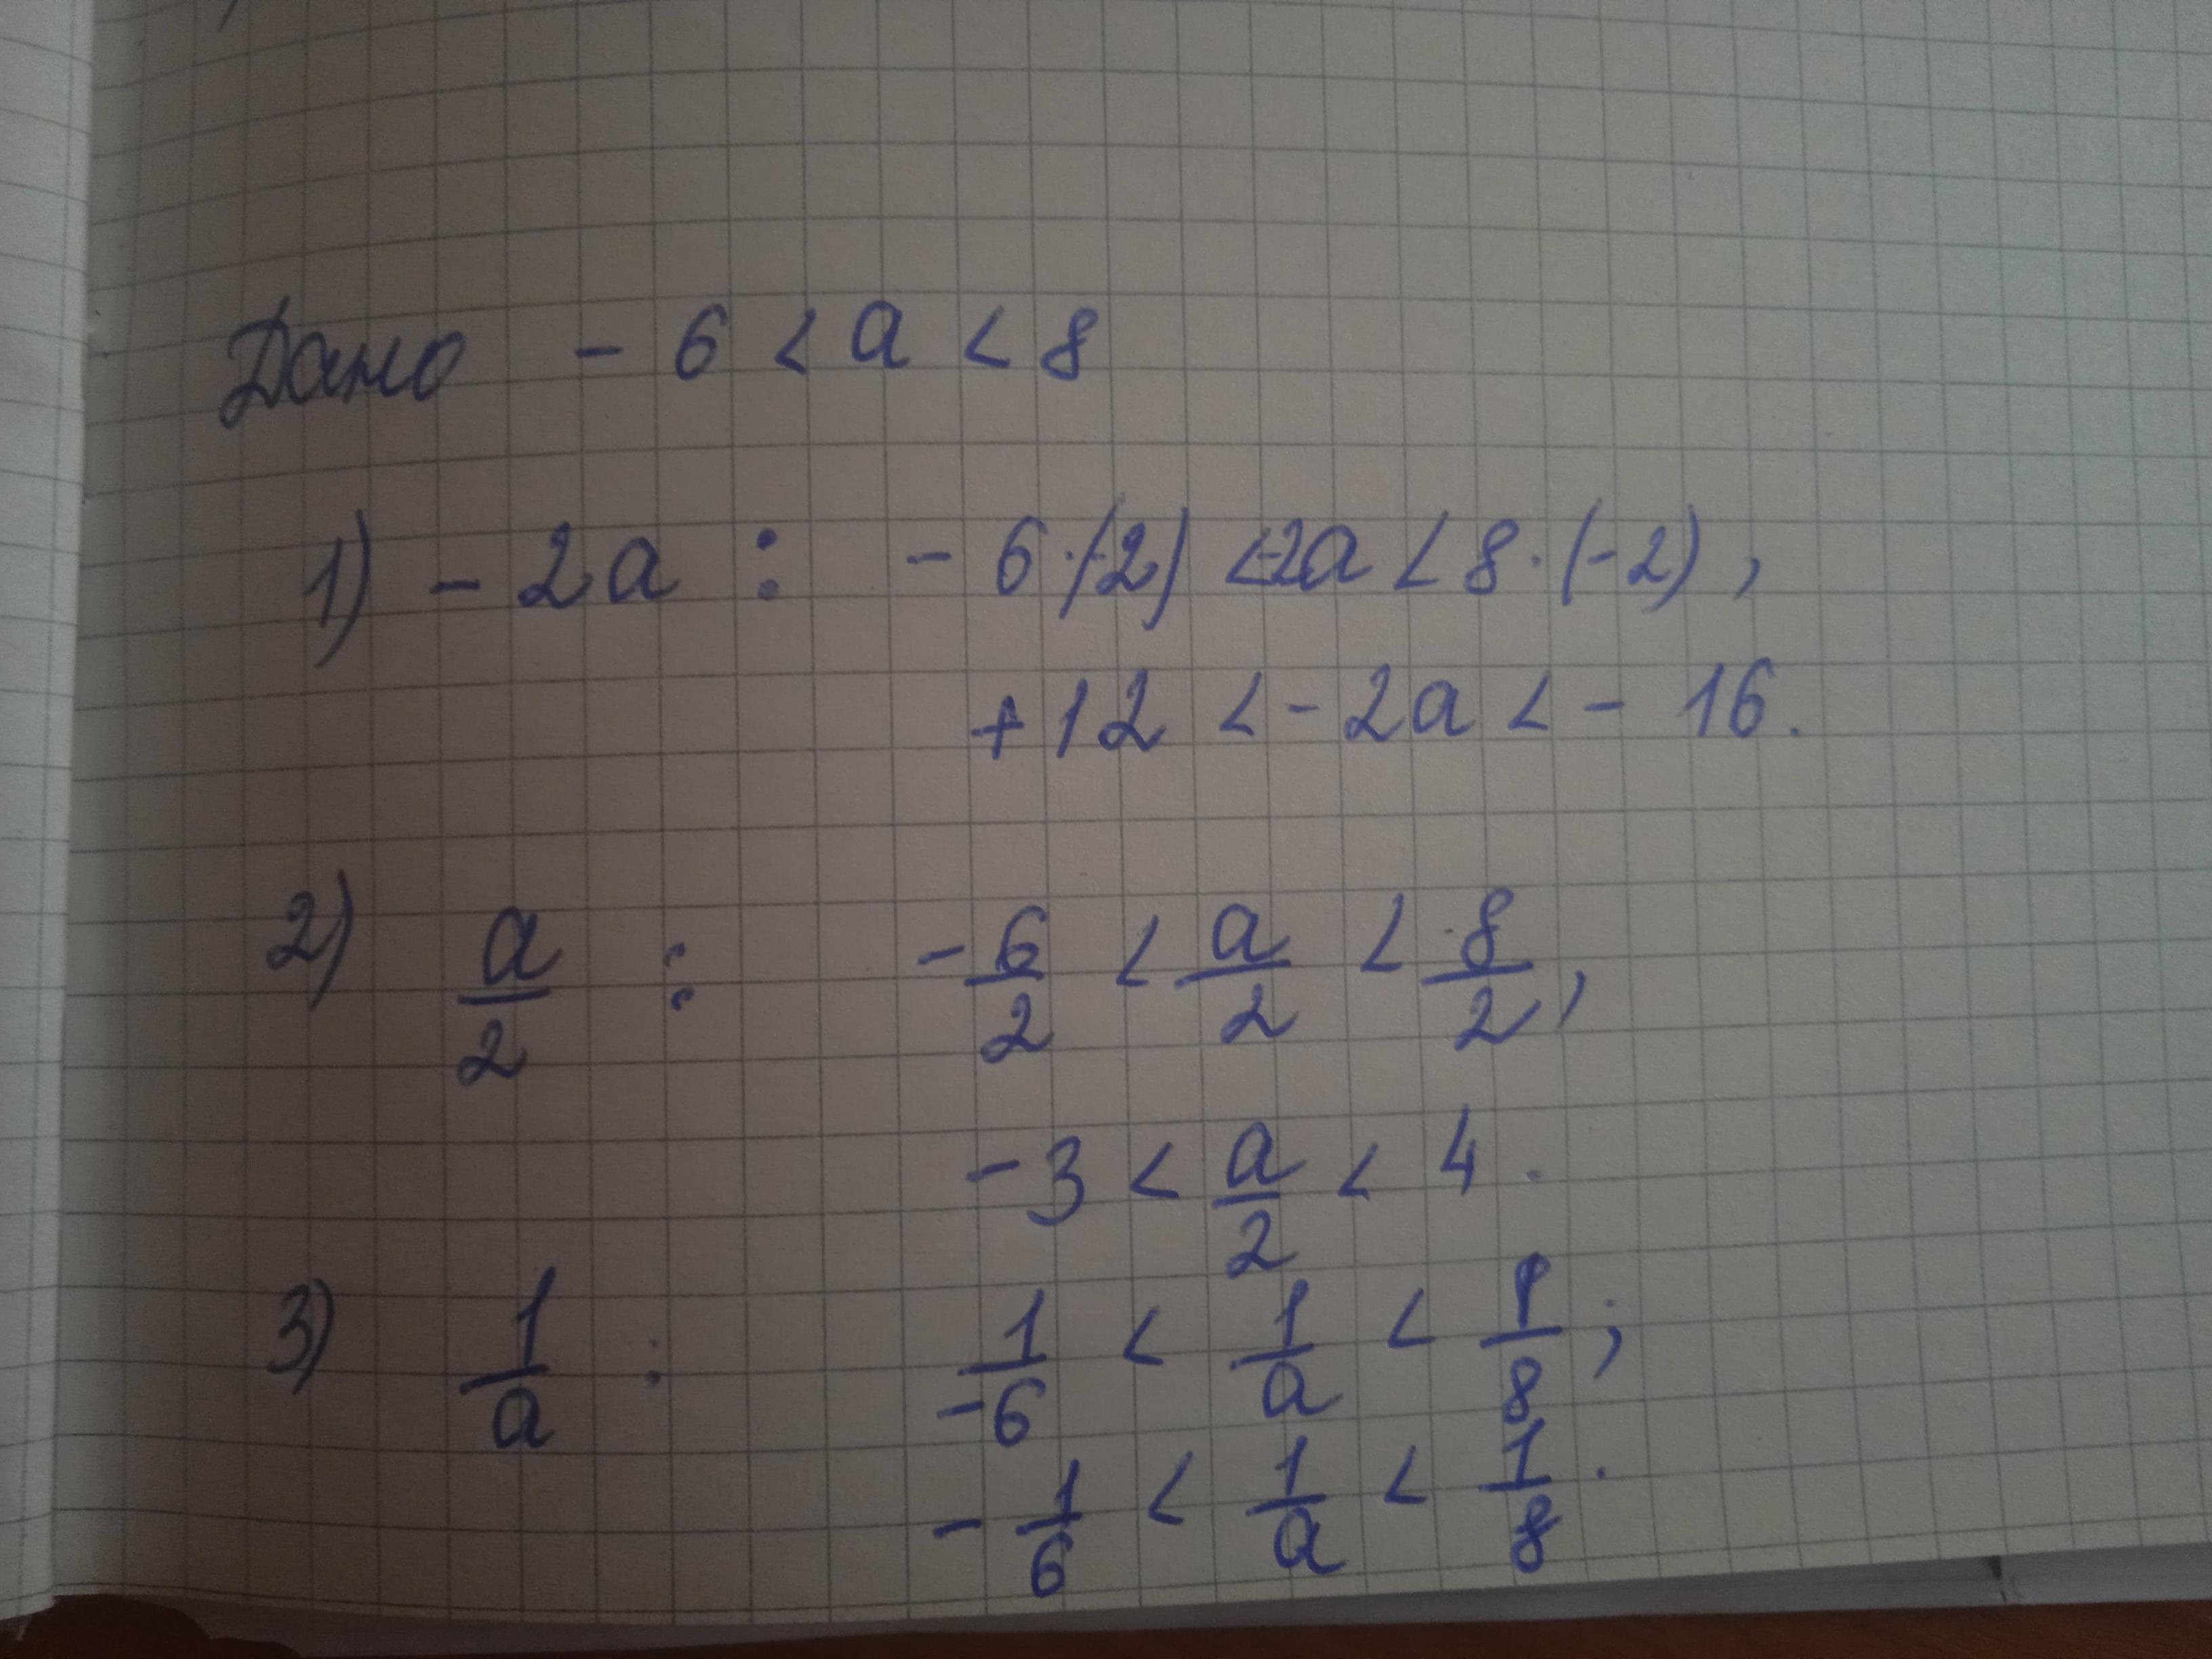 Дано - 6 < a < 8
1) - 2a : - 6·(-2) <-2a < 8·(-2),
+12 < -2a < - 16.
2) a/2 : -6/2 < a/2 < 8/2,
-3 < a/2 < 4.
3) 1/a : 1/-6 < 1/a < 1/8;
-1/6 < 1/a < 1/8.